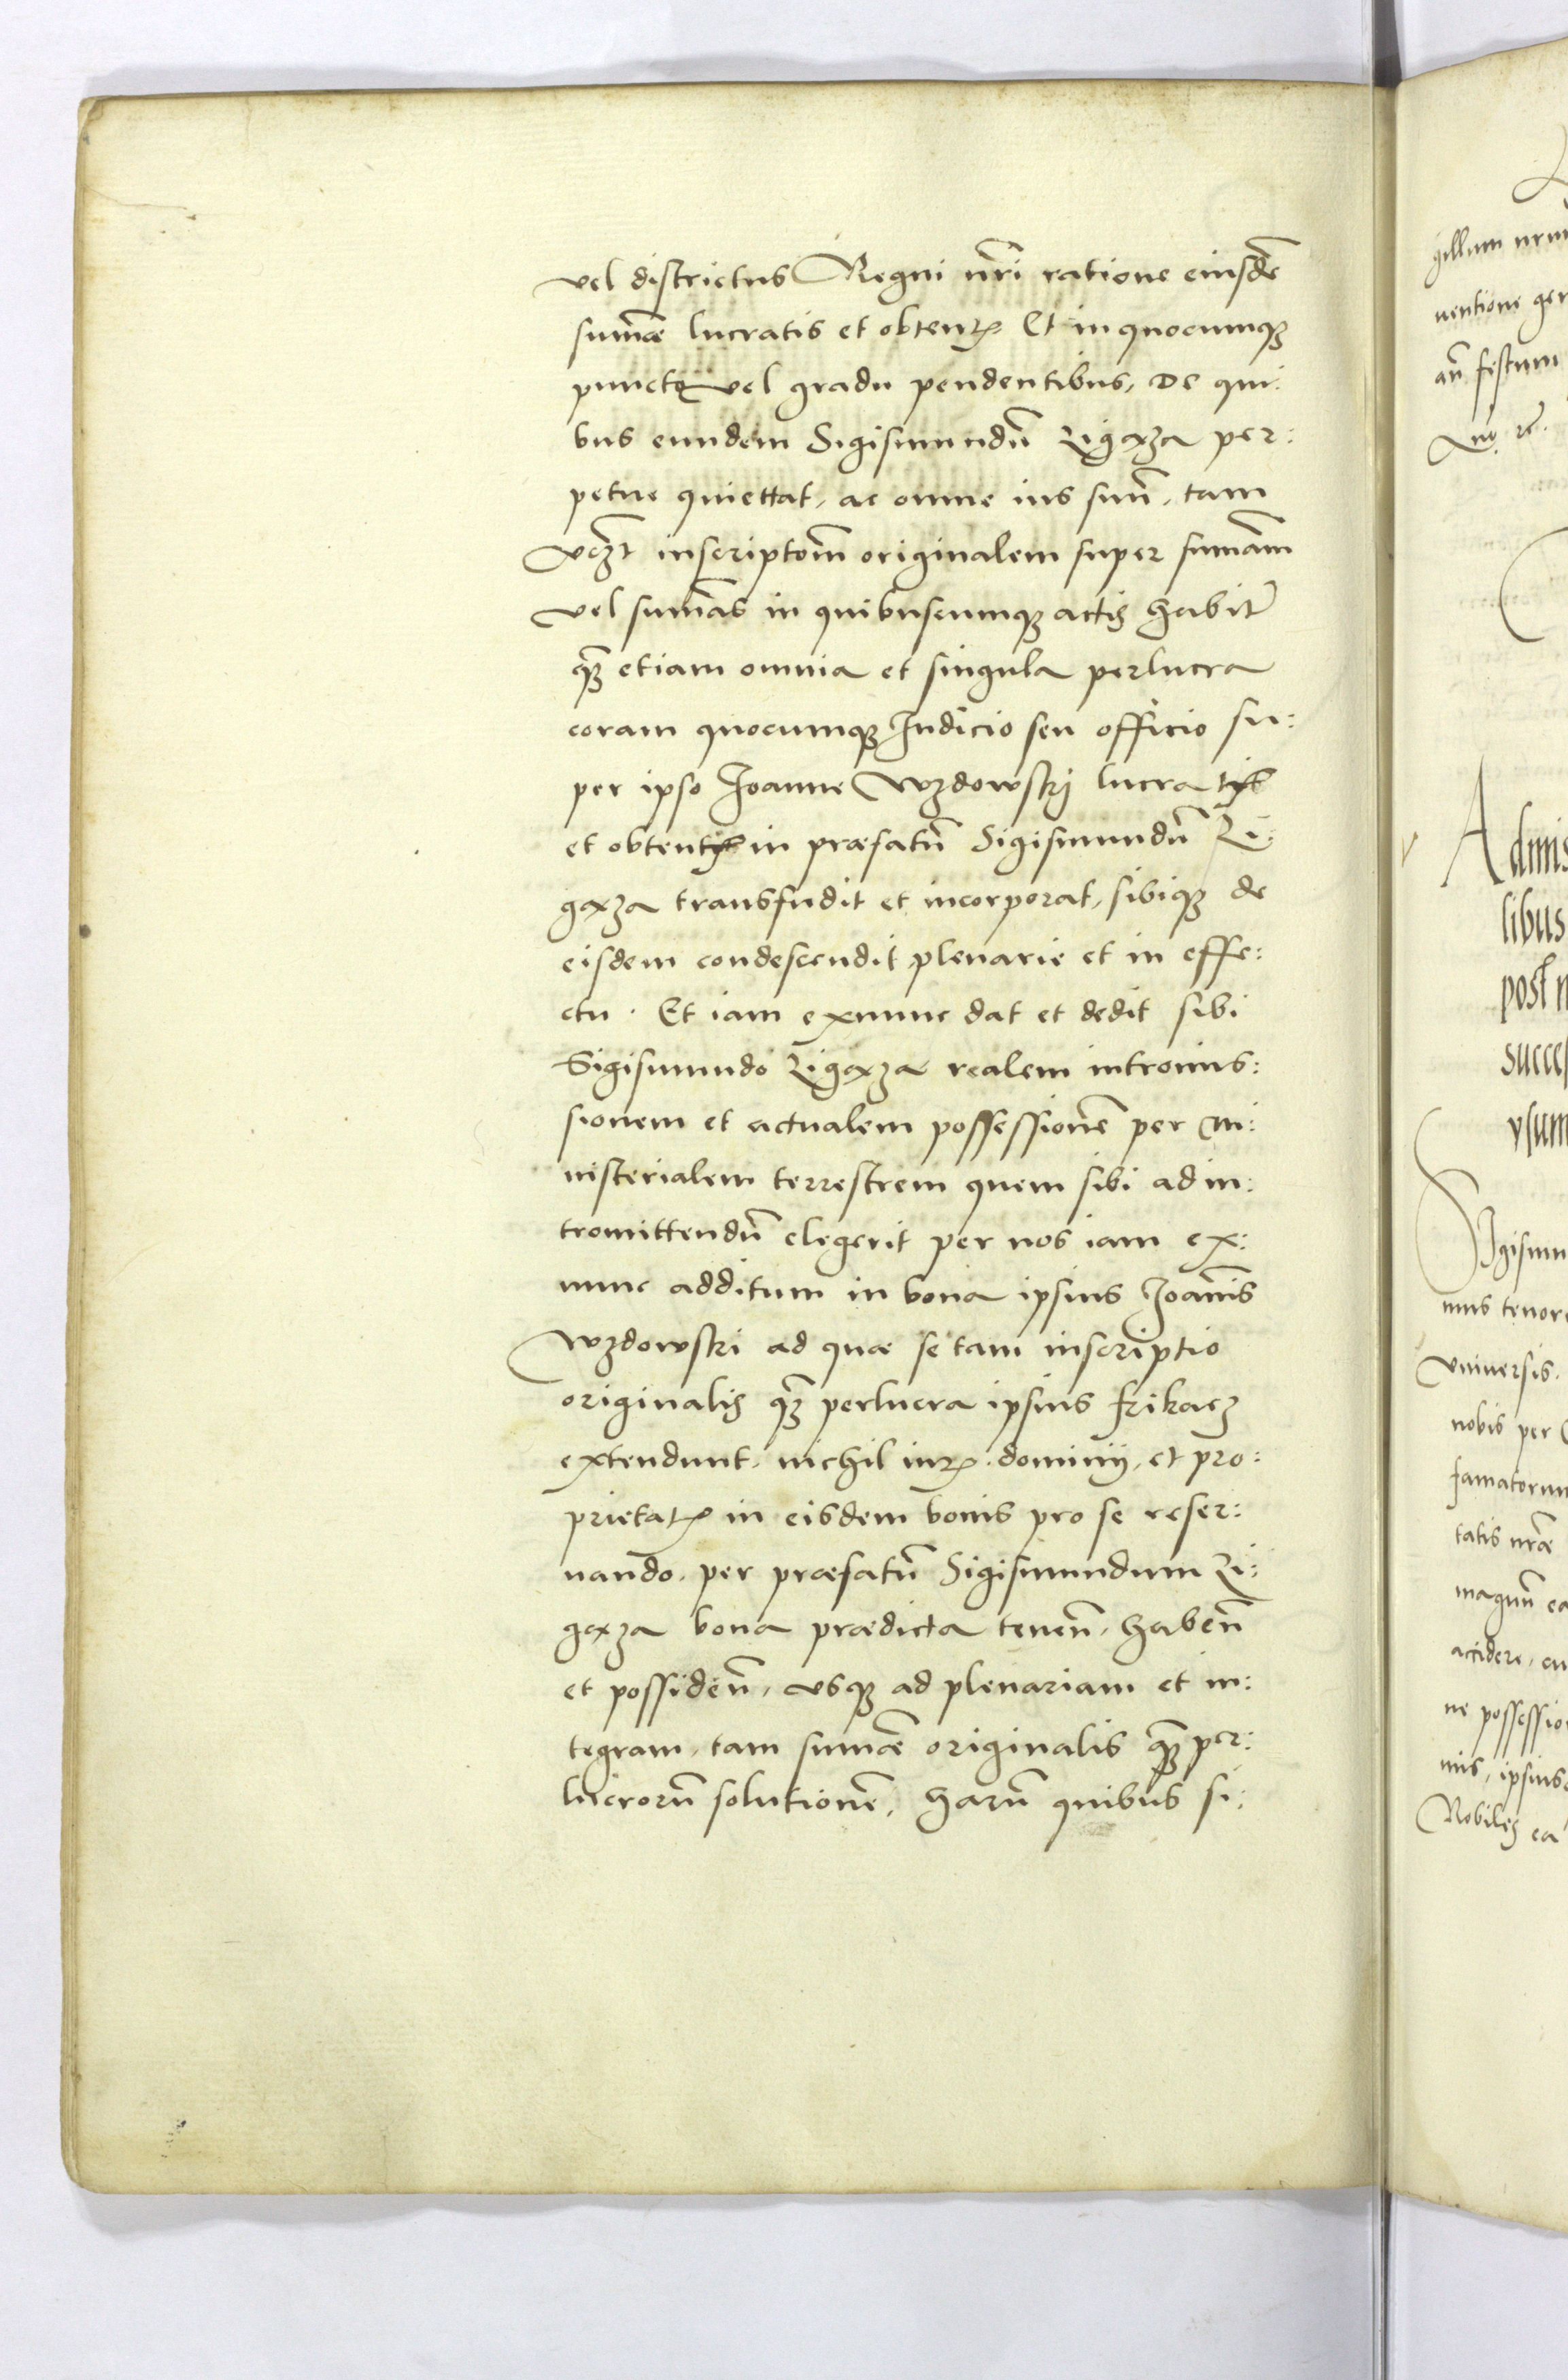 vel districtus Regni nr̃i ratione eiusdẽ
sum̃ae lucratis et obtent. Et in quocumq3
puncto vel gradu pendentibus, De qui:
bus eundem Sigismundũ Ligaza per:
petue quiettat, ac omne ius suũ, tam
vcz̃t inscriptoñm originalem super sum̃am
vel sum̃as in quibuscumq3 actis habit̃
q̃3 etiam omnia et singula perlucra
coram quocumq3 Iudicio seu officio su:
per ipso Joanne Wzdowskj lucra
et obtent in praefatũ Sigismundũ Li:
gaza transfudit et incorporat, sibiq3 de
eisdem condescendit plenarie et in effe:
ctu. Et iam exnunc dat et dedit sibi
Sigismundo Ligaza realem intromis:
sionem et actualem possessionẽ per mi:
nisterialem terrestrem quem sibi ad in:
tromittendũ elegerit per nos iam ex:
nunc additum in bona ipsius Joañis
Wzdowski ad quae se tam inscriptio
originalis q̃3 perlucra ipsius frikacz
extendunt, nichil iur. dominij, et pro:
prietat. in eisdem bonis pro se reser:
uando, per praefatũ Sigismundum Li:
gaza bona praedicta teneñ, habeñ
et possideñ, vsq3 ad plenariam et in:
tegram, tam sum̃ae originalis q̃3 per:
lucrorũ solutionẽ, harũ quibus si:
gillum nrum
uentione
añ festum
Admis
libus
post
succes
vsum
Sigismun
mus tenore
vniuersis.
nobis per
famatorum
tatis nr̃ae
magnũ ea
accidere, cu
ne possessio
nis, ipsius
Nobiles ea